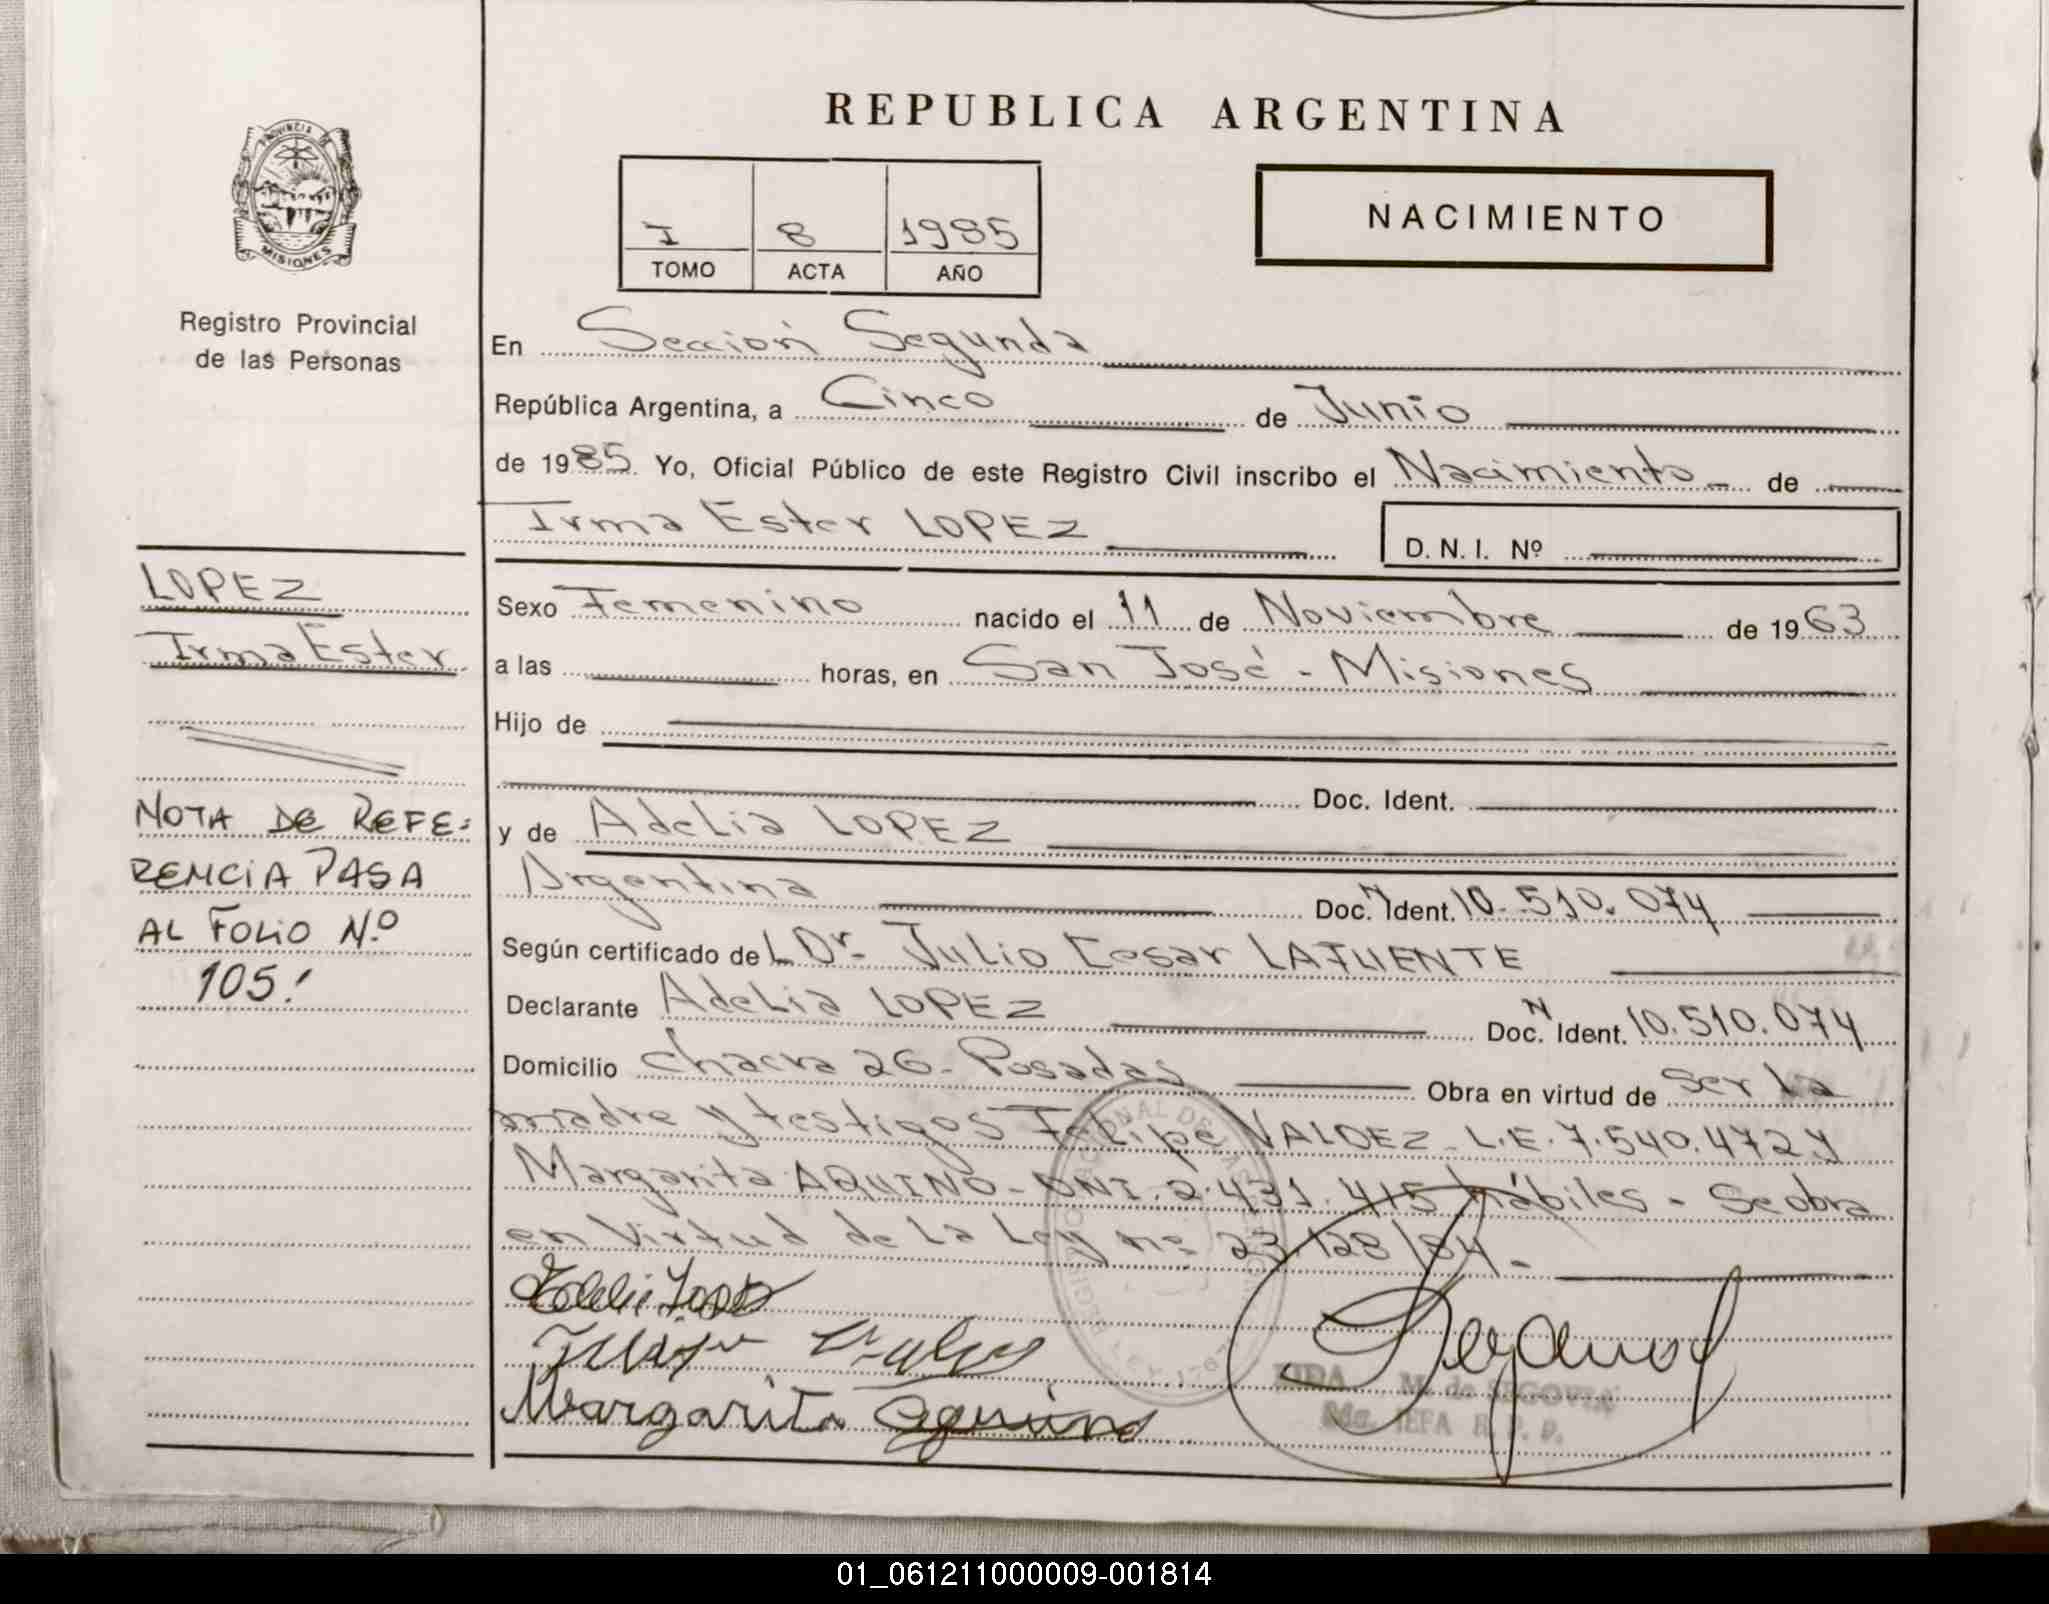 REPUBLICA ARGENTINA
PROVINCIA DE
MISIONES
Registro Provincial
de las Personas
I 8 1985
TOMO ACTA AÑO
NACIMIENTO
En Sección Segunda
República Argentina, a Cinco de Junio
de 1985. Yo, Oficial Público de este Registro Civil inscribo el Nacimiento de
Irma Ester LOPEZ
D. N. I. Nº
LOPEZ
Irma Ester
NOTA DE REFE-
RENCIA PASA
AL FOLIO Nº
105!
Sexo Femenino nacido el 11 de Noviembre de 1963
a las horas, en San José - Misiones
Hijo de
Doc. Ident.
y de Adelia LOPEZ
Argentina Doc. N Ident. 10.510.074
Según certificado del Dr. Julio Cesar LAFUENTE
Declarante Adelia LOPEZ Doc. N Ident. 10.510.074
Domicilio Chacra 26 - Posadas Obra en virtud de ser la
madre y testigos Felipe VALDEZ - L.E. 7.540.472 y
Margarita AQUINO - DNI. 2.431.415 hábiles - Se obra
en Virtud de La Ley nº 23.128/84 -
Margarita Aquino
M. de SEGOVIA
JEFA R. P. P.
01_061211000009-001814